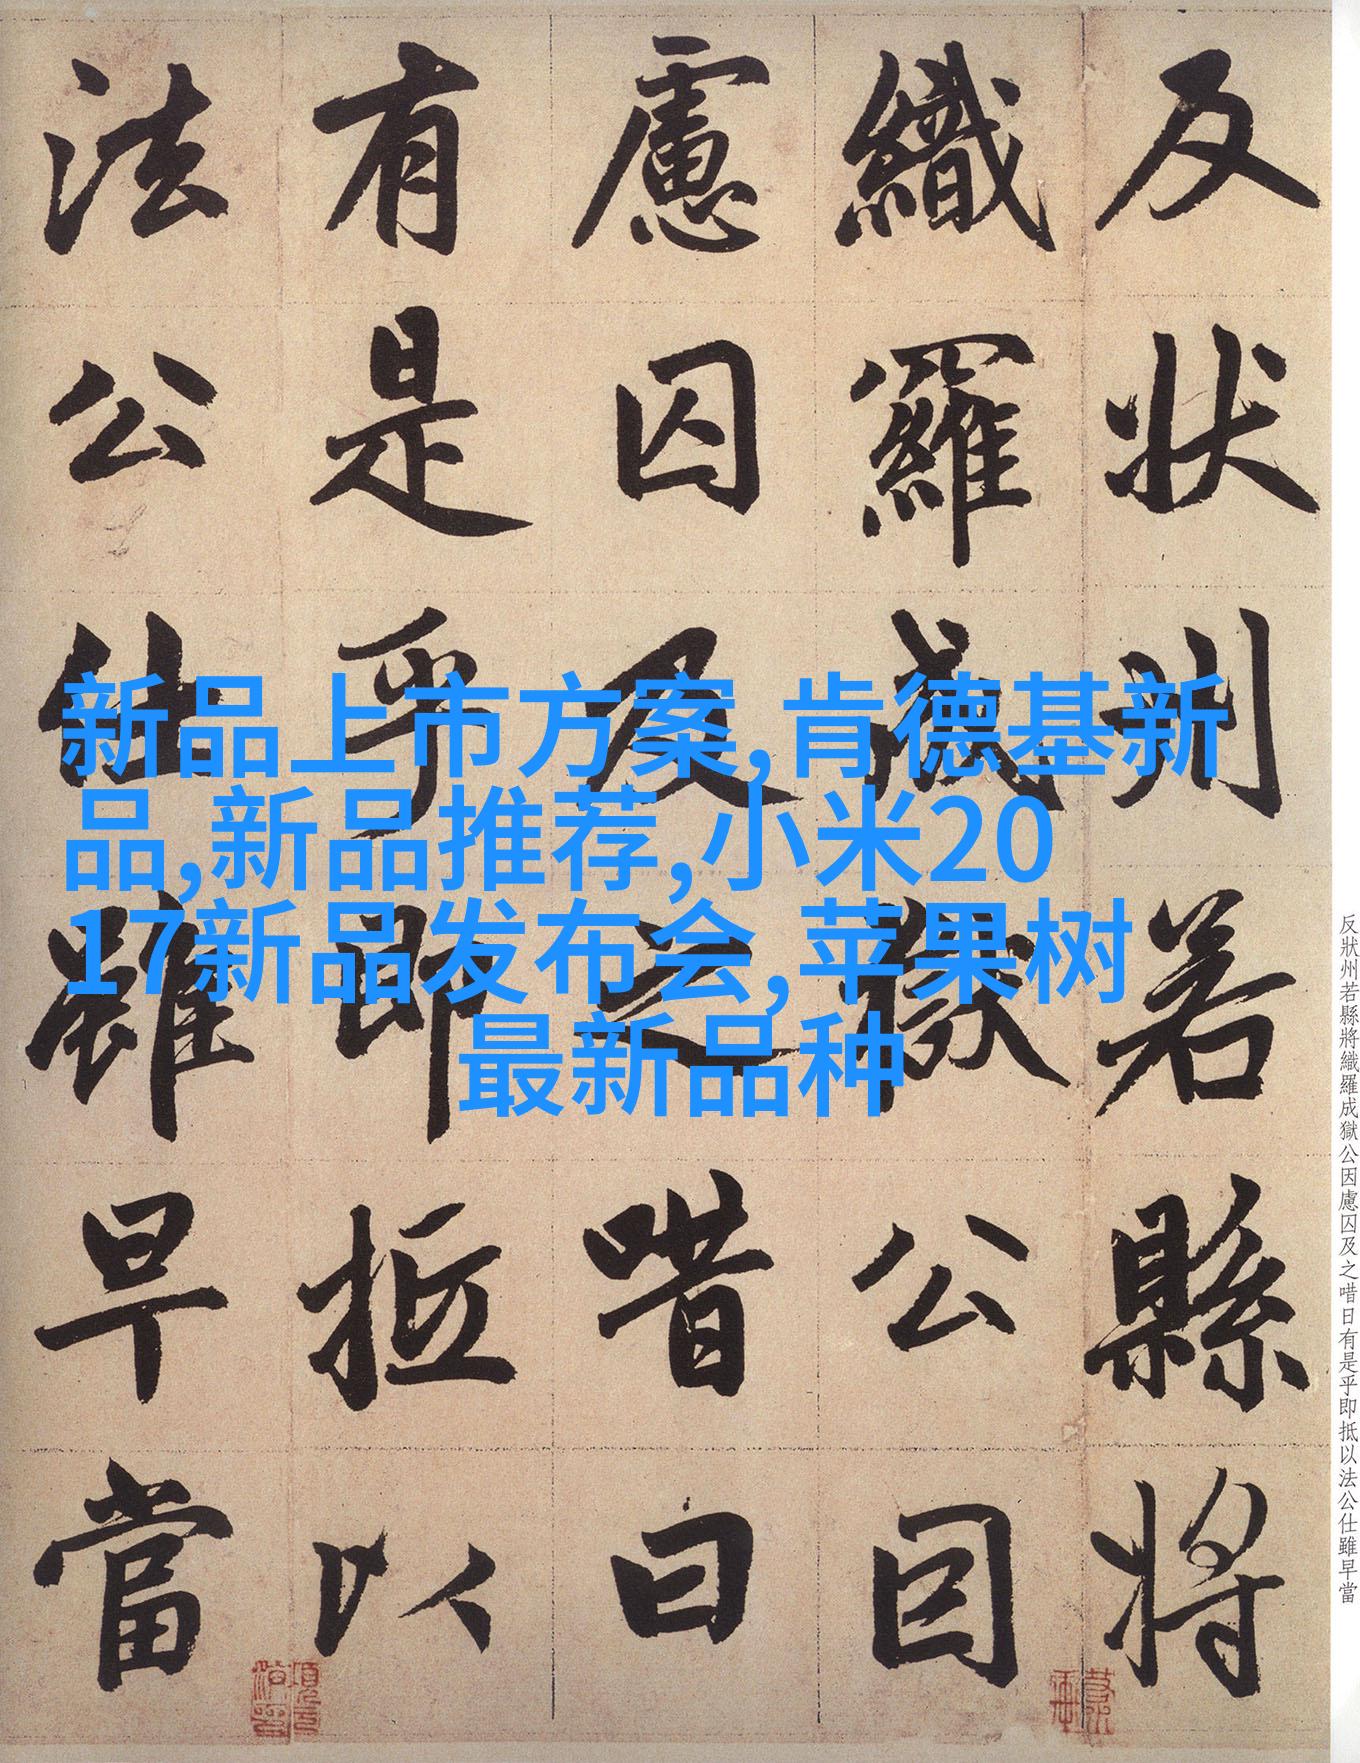 反状州若縣将
織羅成獄公因
慮囚及之唶曰
有是乎即抵以
法公仕雖早當
新品上市方案,肯德基新
品,新品推荐,小米20
17新品发布会,苹果树
最新品种
反狀州若縣將織羅成獄公因慮囚及之唶日有是乎即抵以法公仕雖早當